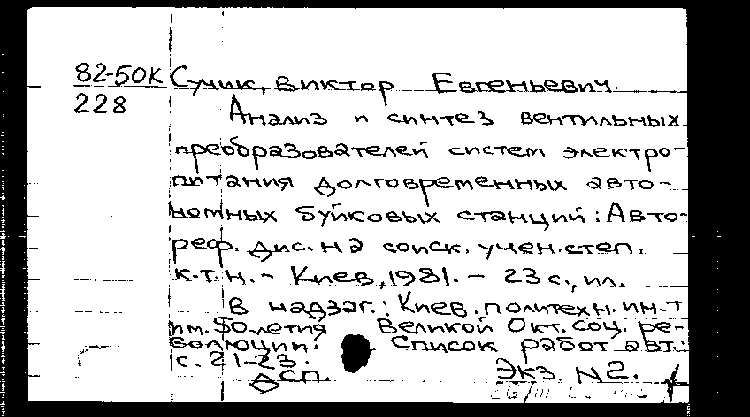 82-50К Сучик, Виктор Евгеньевич
228
Анализ и синтез вентильных
преобразователей систем электро-
питания долговременных авто-
номных буйковых станций: Авто-
реф. дис. на соиск. учен. степ.
к.т.н. - Киев, 1981. - 23 с., ил.
В надзаг.: Киев. политехн. ин-т
им. 50-летия Великой Окт. соц. ре-
волюции. Список работ авт.:
с. 21-23.
ДСП Экз. №2.